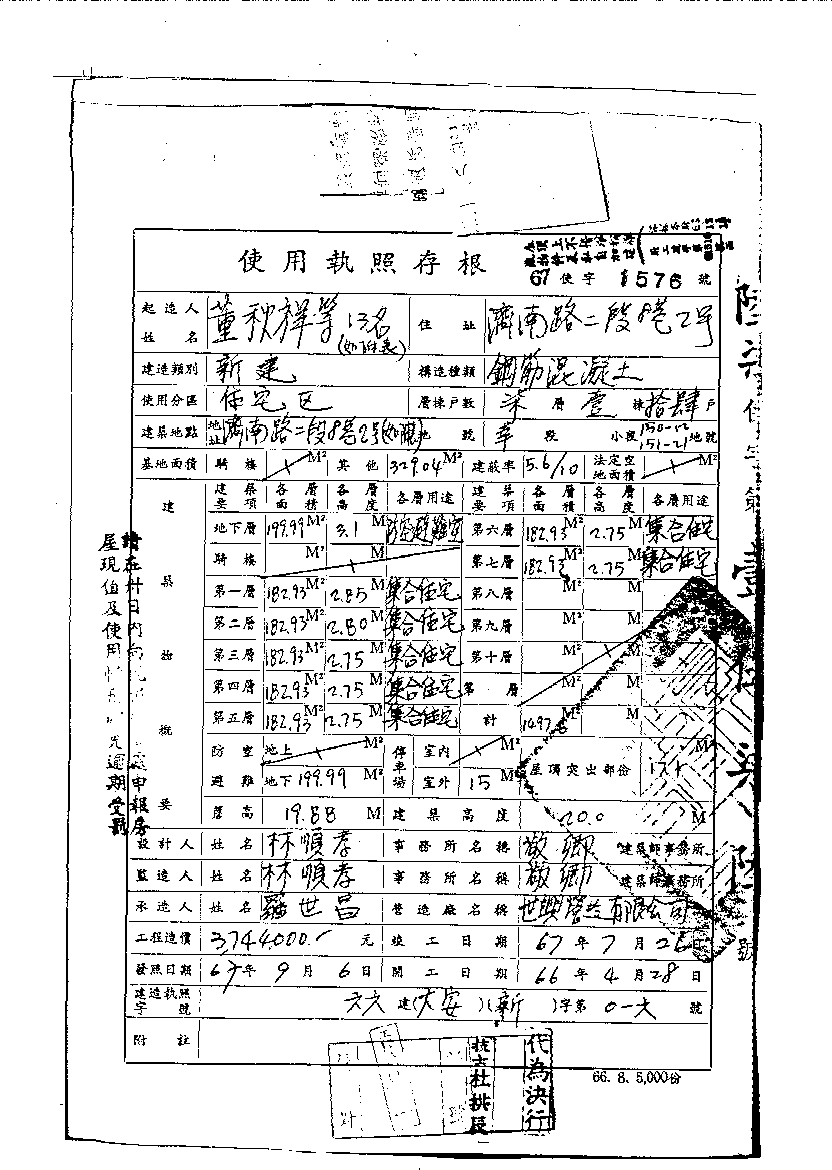 使用執照存根
67 使字 1576 號
起造人姓名 董秋祥等13名(如附表) 住址 濟南路二段8巷2号
建造類別 新建 構造種類 鋼筋混凝土
使用分區 住宅区 層棟戶數 柒層壹棟拾肆戶
建築地點 地址 濟南路二段8巷2号 地號 段 小段 150-12 151-21 地號
基地面積 騎樓 M² 其他 329.04 M² 建蔽率 5.6/10 法定空地面積 M²
建築物概要 建築要項 各層面積 各層高度 各層用途 建築要項 各層面積 各層高度 各層用途
地下層 199.99 M² 3.1 M 防空避難室 第六層 182.93 M² 2.75 M 集合住宅
騎樓 M² M 第七層 182.93 M² 2.75 M 集合住宅
第一層 182.93 M² 2.85 M 集合住宅 第八層 M² M
第二層 182.93 M² 2.80 M 集合住宅 第九層 M² M
第三層 182.93 M² 2.75 M 集合住宅 第十層 M² M
第四層 182.93 M² 2.75 M 集合住宅 第 層 M² M
第五層 182.93 M² 2.75 M 集合住宅 計 M² M
防空避難 地上 M² 停車場 室內 M² 屋頂突出部份 M²
地下 199.99 室外 15 M²
簷高 19.88 M 建築高度 20.0 M
設計人 姓名 林順孝 事務所名稱 敬鄉 建築師事務所
監造人 姓名 林順孝 事務所名稱 敬鄉 建築師事務所
承造人 姓名 羅世昌 營造廠名稱 世興營造有限公司
工程造價 3744000.- 元 竣工日期 67年7月26日
發照日期 67年9月6日 開工日期 66年4月28日
建造執照字號 六六建(大安)(新)字第0一六號
附註
66. 8. 5,000份
代為決行